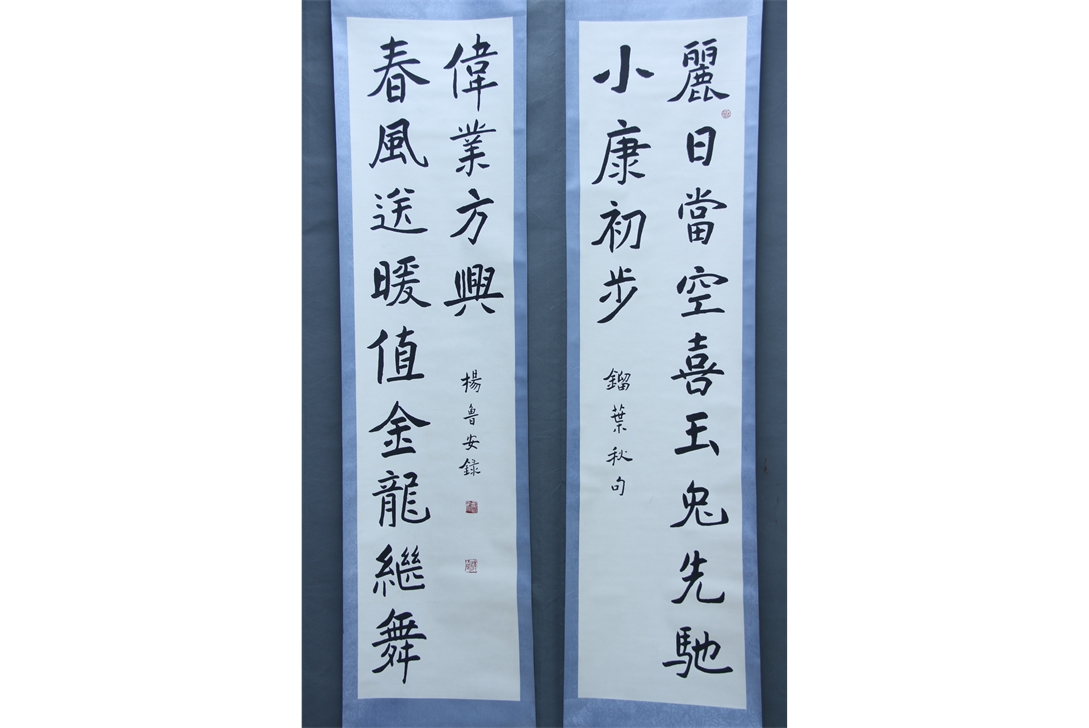 麗日當空喜玉兔先馳
小康初步
鎦葉秋句
春風送暖值金龍繼舞
偉業方興
楊魯安錄